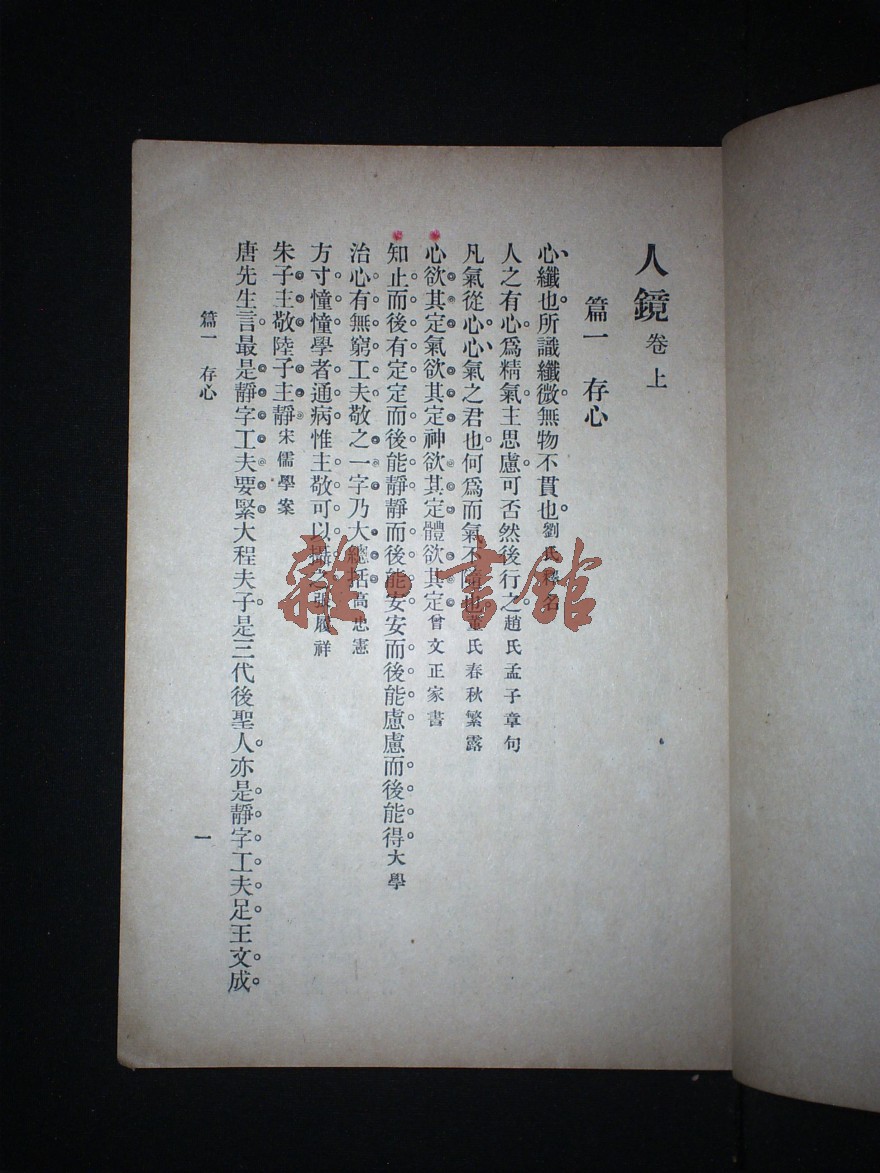 人鏡 卷上
篇一 存心
心纖也所識纖微無物不貫也 劉氏釋名
人之有心爲精氣主思慮可否然後行之 趙氏孟子章句
凡氣從心心氣之君也何爲而氣不隨也 董氏春秋繁露
心欲其定氣欲其定神欲其定體欲其定 曾文正家書
知止而後有定定而後能靜靜而後能安安而後能慮慮而後能得 大學
治心有無窮工夫敬之一字乃大總括 高忠憲
方寸憧憧學者通病惟主敬可以攝之 張履祥
朱子主敬陸子主靜 宋儒學案
唐先生言最是靜字工夫要緊大程夫子是三代後聖人亦是靜字工夫足王文成
篇一 存心
一
雜·書館